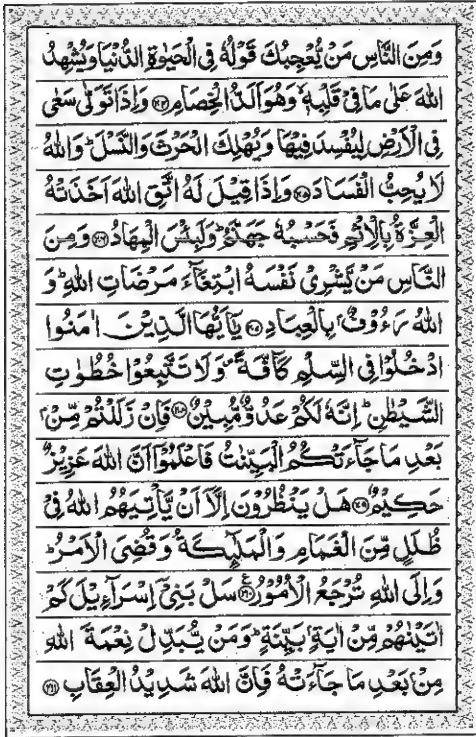 وَمِنَ النَّاسِ مَنْ يُّعْجِبُكَ قَوْلُهٗ فِي الْحَيٰوةِ الدُّنْيَا وَيُشْهِدُ
اللّٰهَ عَلٰى مَا فِيْ قَلْبِهٖ ۙ وَهُوَ اَلَدُّ الْخِصَامِ ﴿۲۰۴﴾ وَاِذَا تَوَلّٰى سَعٰى
فِي الْاَرْضِ لِيُفْسِدَ فِيْهَا وَيُهْلِكَ الْحَرْثَ وَالنَّسْلَ ؕ وَاللّٰهُ
لَا يُحِبُّ الْفَسَادَ ﴿۲۰۵﴾ وَاِذَا قِيْلَ لَهُ اتَّقِ اللّٰهَ اَخَذَتْهُ
الْعِزَّةُ بِالْاِثْمِ فَحَسْبُهٗ جَهَنَّمُ ؕ وَلَبِئْسَ الْمِهَادُ ﴿۲۰۶﴾ وَمِنَ
النَّاسِ مَنْ يَّشْرِيْ نَفْسَهُ ابْتِغَآءَ مَرْضَاتِ اللّٰهِ ؕ وَ
اللّٰهُ رَءُوْفٌۢ بِالْعِبَادِ ﴿۲۰۷﴾ يٰۤاَيُّهَا الَّذِيْنَ اٰمَنُوا
ادْخُلُوْا فِي السِّلْمِ كَآفَّةً ۪ وَلَا تَتَّبِعُوْا خُطُوٰتِ
الشَّيْطٰنِ ؕ اِنَّهٗ لَكُمْ عَدُوٌّ مُّبِيْنٌ ﴿۲۰۸﴾ فَاِنْ زَلَلْتُمْ مِّنْۢ
بَعْدِ مَا جَآءَتْكُمُ الْبَيِّنٰتُ فَاعْلَمُوْۤا اَنَّ اللّٰهَ عَزِيْزٌ
حَكِيْمٌ ﴿۲۰۹﴾ هَلْ يَنْظُرُوْنَ اِلَّاۤ اَنْ يَّاْتِيَهُمُ اللّٰهُ فِيْ
ظُلَلٍ مِّنَ الْغَمَامِ وَالْمَلٰٓئِكَةُ وَقُضِيَ الْاَمْرُ ؕ
وَاِلَى اللّٰهِ تُرْجَعُ الْاُمُوْرُ ﴿۲۱۰﴾ سَلْ بَنِيْۤ اِسْرَآءِيْلَ كَمْ
اٰتَيْنٰهُمْ مِّنْ اٰيَةٍۭ بَيِّنَةٍ ؕ وَمَنْ يُّبَدِّلْ نِعْمَةَ اللّٰهِ
مِنْۢ بَعْدِ مَا جَآءَتْهُ فَاِنَّ اللّٰهَ شَدِيْدُ الْعِقَابِ ﴿۲۱۱﴾